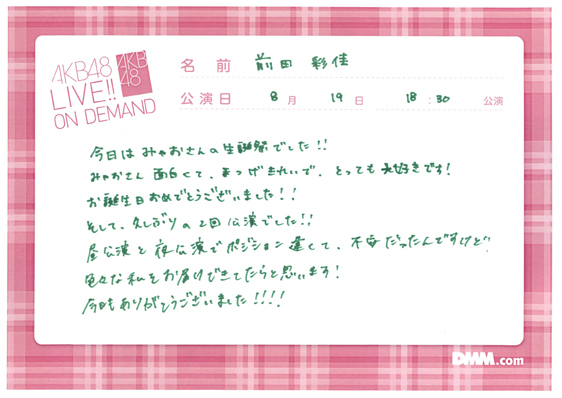 AKB48
LIVE!!
ON DEMAND
AKB
48
名前 前田 彩佳
公演日 8月 19日 18:30 公演
今日はみゃおさんの生誕祭でした!!
みゃおさん 面白くて、まつげきれいで、とっても大好きです!
お誕生日おめでとうございました!!
そして、久しぶりの2回公演でした!!
昼公演と夜公演でポジション違くて、不安だったんですけど
色々な私をお届けできてたらと思います!
今日もありがとうございました!!!!
DMM.com